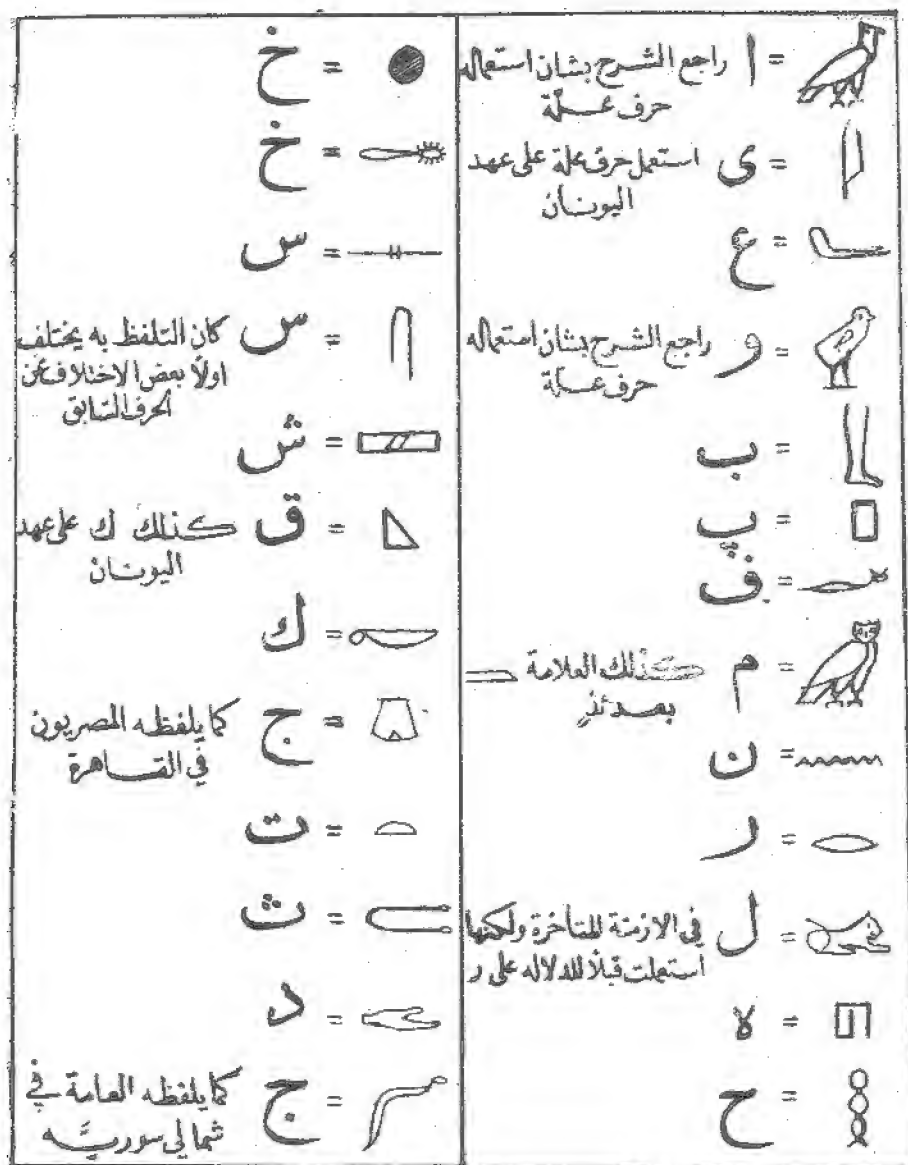 = ا راجع الشرح بشان استعماله
حرف عـلّة
= ى استعمل حرف علة على عهد
اليونان
= ع
= و راجع الشرح بشان استعماله
حرف عـلّة
= ب
= پ
= ف
= م كذلك العلامة
بعدئذٍ
= ن
= ر
= ل في الازمنة المتأخرة ولكنها
استعملت قبلاً للدلاله على ر
= ه
= ح
= خ
= خ
= س
= س كان التلفظ به يختلف
اولاً بعض الاختلاف عن
الحرف السابق
= ش
= ق كذلك ك على عهد
اليونان
= ك
= ج كما يلفظه المصريون
في القاهرة
= ت
= ث
= د
= ج كما يلفظه العامة في
شمالي سوريّه